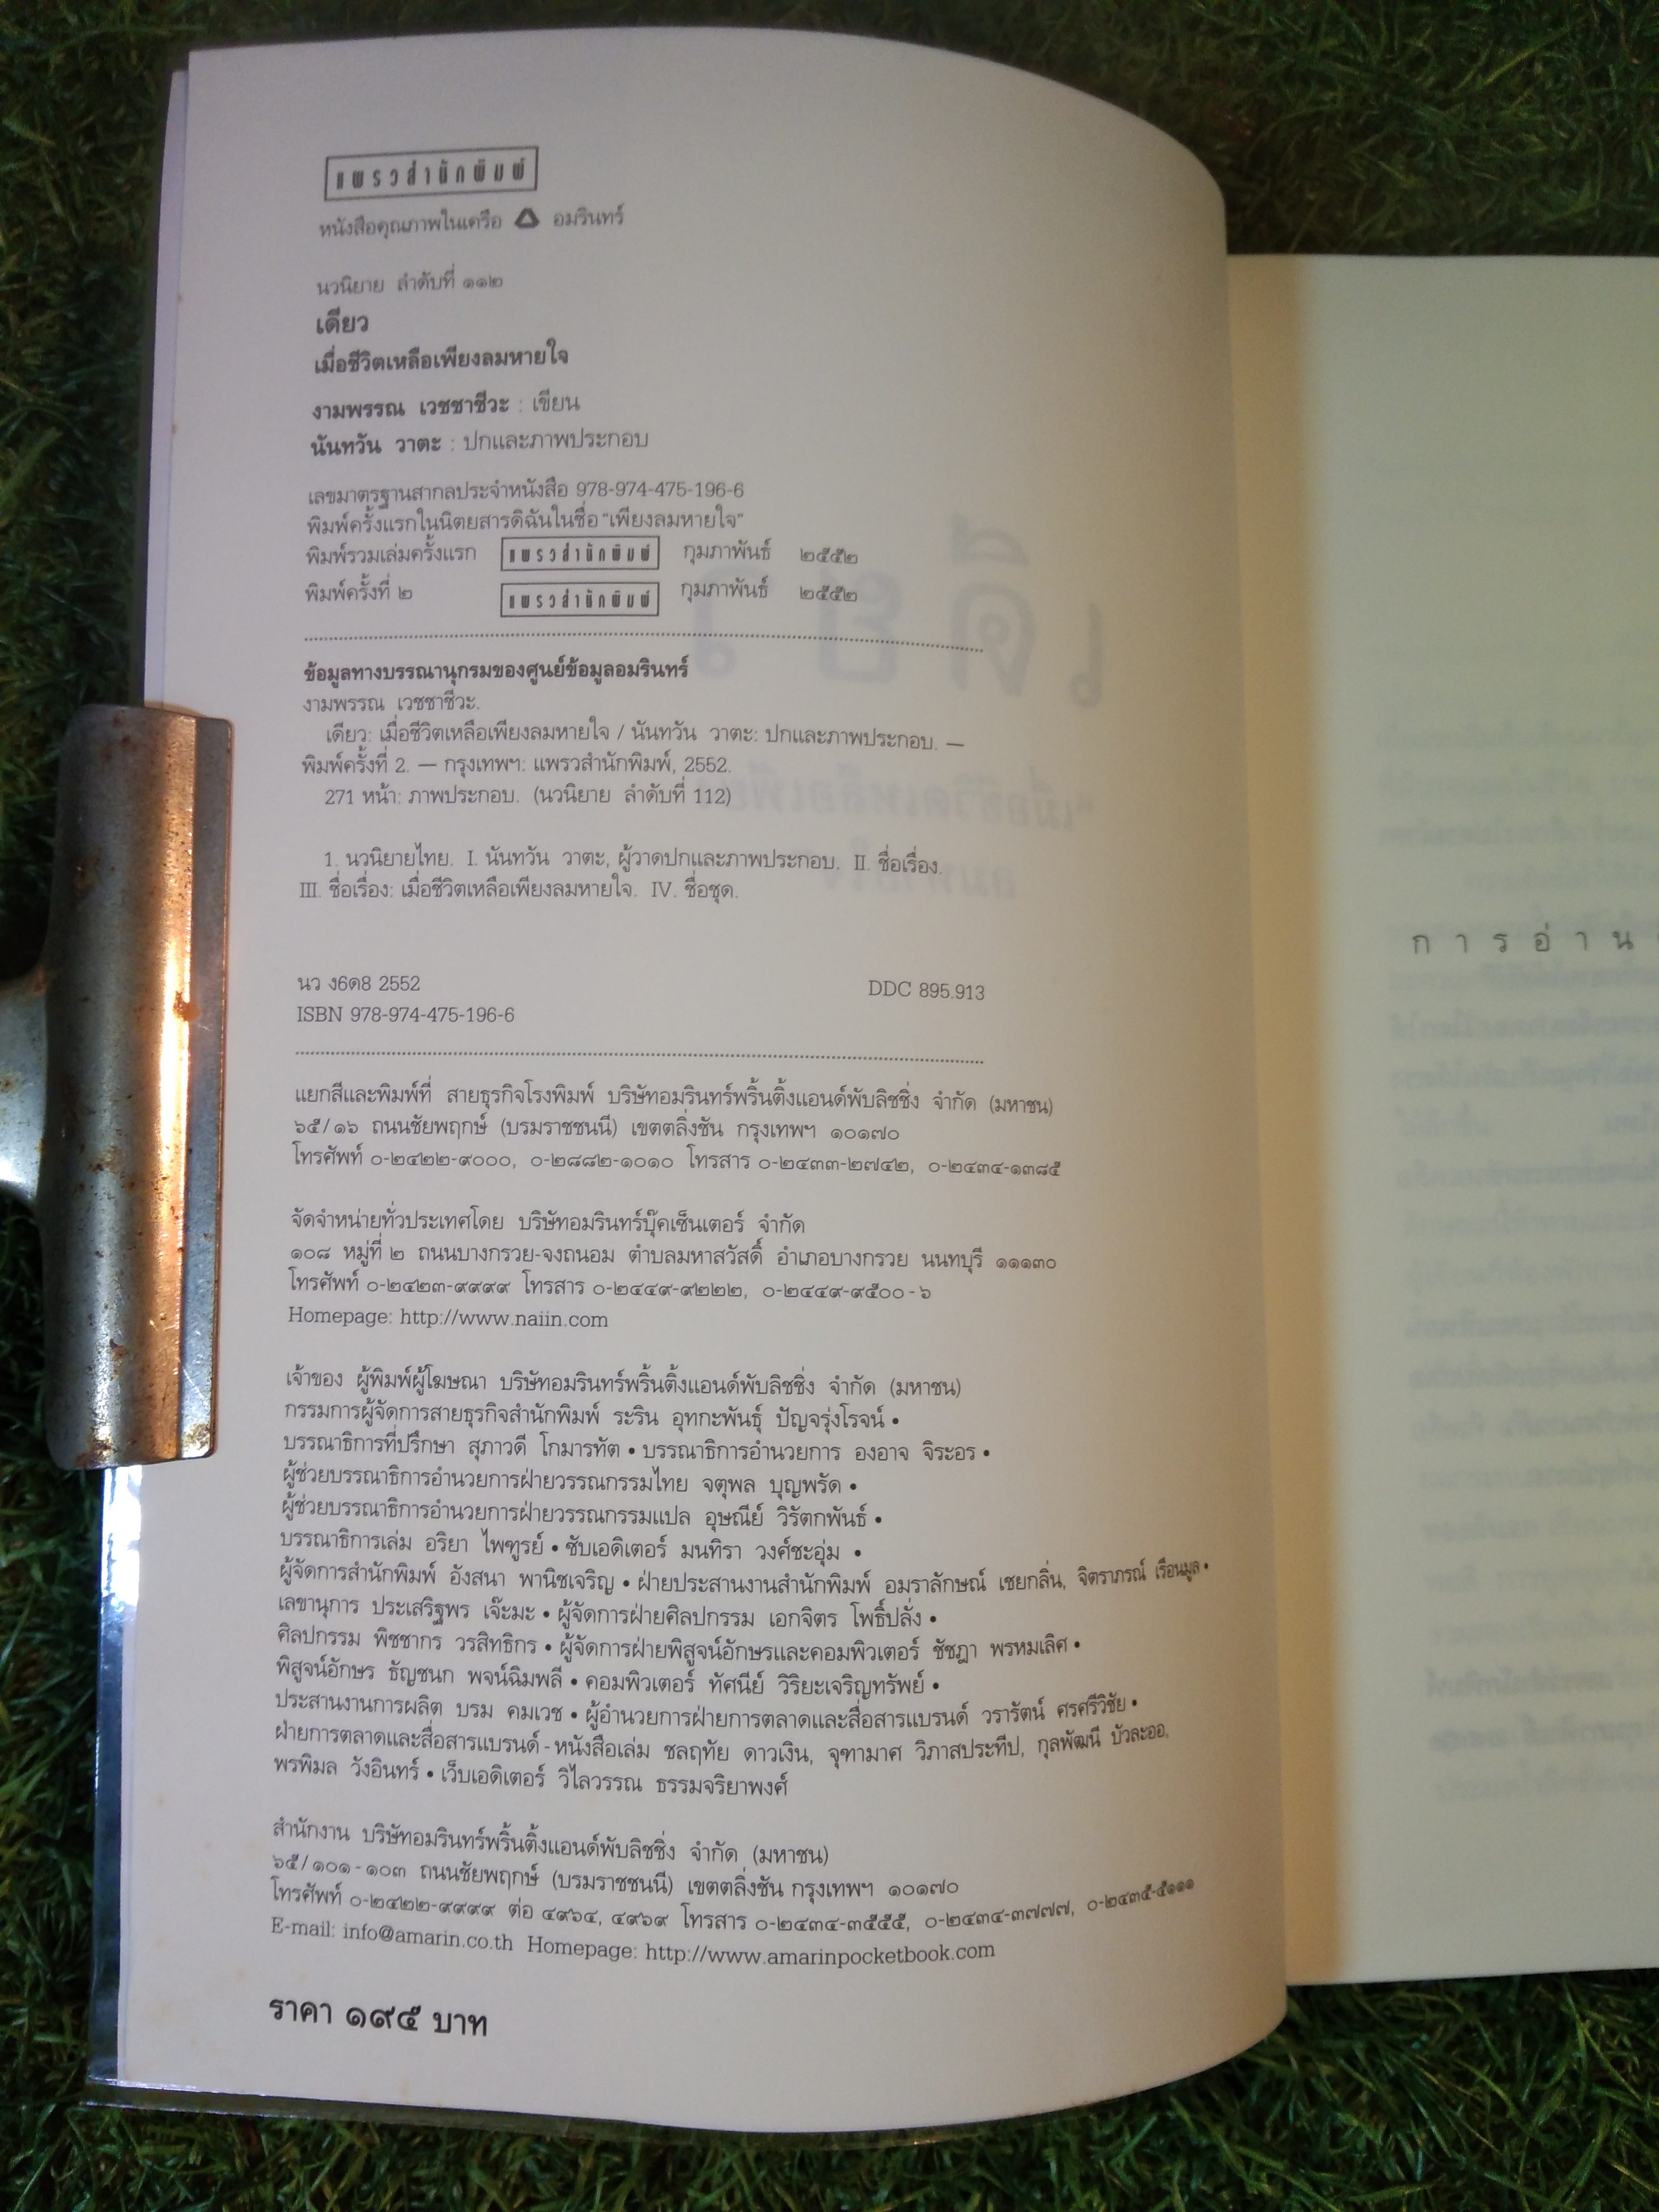 แพรวสำนักพิมพ์
หนังสือคุณภาพในเครือ อมรินทร์
นวนิยาย ลำดับที่ ๑๑๒
เดียว
เมื่อชีวิตเหลือเพียงลมหายใจ
งามพรรณ เวชชาชีวะ : เขียน
นันทวัน วาตะ : ปกและภาพประกอบ
เลขมาตรฐานสากลประจำหนังสือ 978-974-475-196-6
พิมพ์ครั้งแรกในนิตยสารดิฉันในชื่อ "เพียงลมหายใจ"
พิมพ์รวมเล่มครั้งแรก แพรวสำนักพิมพ์ กุมภาพันธ์ ๒๕๕๒
พิมพ์ครั้งที่ ๒ แพรวสำนักพิมพ์ กุมภาพันธ์ ๒๕๕๒
ข้อมูลทางบรรณานุกรมของศูนย์ข้อมูลอมรินทร์
งามพรรณ เวชชาชีวะ.
เดียว: เมื่อชีวิตเหลือเพียงลมหายใจ / นันทวัน วาตะ: ปกและภาพประกอบ. —
พิมพ์ครั้งที่ 2. — กรุงเทพฯ: แพรวสำนักพิมพ์, 2552.
271 หน้า: ภาพประกอบ. (นวนิยาย ลำดับที่ 112)
1. นวนิยายไทย. I. นันทวัน วาตะ, ผู้วาดปกและภาพประกอบ. II. ชื่อเรื่อง.
III. ชื่อเรื่อง: เมื่อชีวิตเหลือเพียงลมหายใจ. IV. ชื่อชุด.
นว ง6ด8 2552 DDC 895.913
ISBN 978-974-475-196-6
แยกสีและพิมพ์ที่ สายธุรกิจโรงพิมพ์ บริษัทอมรินทร์พริ้นติ้งแอนด์พับลิชชิ่ง จำกัด (มหาชน)
๖๕/๑๖ ถนนชัยพฤกษ์ (บรมราชชนนี) เขตตลิ่งชัน กรุงเทพฯ ๑๐๑๗๐
โทรศัพท์ ๐-๒๔๒๒-๙๐๐๐, ๐-๒๘๘๒-๑๐๑๐ โทรสาร ๐-๒๔๓๓-๒๗๔๒, ๐-๒๔๓๔-๑๓๘๕
จัดจำหน่ายทั่วประเทศโดย บริษัทอมรินทร์บุ๊คเซ็นเตอร์ จำกัด
๑๐๘ หมู่ที่ ๒ ถนนบางกรวย-จงถนอม ตำบลมหาสวัสดิ์ อำเภอบางกรวย นนทบุรี ๑๑๑๓๐
โทรศัพท์ ๐-๒๔๒๓-๙๙๙๙ โทรสาร ๐-๒๔๔๙-๙๒๒๒, ๐-๒๔๔๙-๙๕๐๐-๖
Homepage: http://www.naiin.com
เจ้าของ ผู้พิมพ์ผู้โฆษณา บริษัทอมรินทร์พริ้นติ้งแอนด์พับลิชชิ่ง จำกัด (มหาชน)
กรรมการผู้จัดการสายธุรกิจสำนักพิมพ์ ระริน อุทกะพันธุ์ ปัญจรุ่งโรจน์ •
บรรณาธิการที่ปรึกษา สุภาวดี โกมารทัต • บรรณาธิการอำนวยการ องอาจ จิระอร •
ผู้ช่วยบรรณาธิการอำนวยการฝ่ายวรรณกรรมไทย จตุพล บุญพรัด •
ผู้ช่วยบรรณาธิการอำนวยการฝ่ายวรรณกรรมแปล อุษณีย์ วิรัตกพันธ์ •
บรรณาธิการเล่ม อริยา ไพฑูรย์ • ซับเอดิเตอร์ มนทิรา วงศ์ชะอุ่ม •
ผู้จัดการสำนักพิมพ์ อังสนา พานิชเจริญ • ฝ่ายประสานงานสำนักพิมพ์ อมราลักษณ์ เชยกลิ่น, จิตราภรณ์ เรือนมูล •
เลขานุการ ประเสริฐพร เจ๊ะมะ • ผู้จัดการฝ่ายศิลปกรรม เอกจิตร โพธิ์ปลั่ง •
ศิลปกรรม พิชชากร วรสิทธิกร • ผู้จัดการฝ่ายพิสูจน์อักษรและคอมพิวเตอร์ ชัชฎา พรหมเลิศ •
พิสูจน์อักษร ธัญชนก พจน์ฉิมพลี • คอมพิวเตอร์ ทัศนีย์ วิริยะเจริญทรัพย์ •
ประสานงานการผลิต บรม คมเวช • ผู้อำนวยการฝ่ายการตลาดและสื่อสารแบรนด์ วรารัตน์ ศรศรีวิชัย •
ฝ่ายการตลาดและสื่อสารแบรนด์-หนังสือเล่ม ชลฤทัย ดาวเงิน, จุฑามาศ วิภาสประทีป, กุลพัฒนี บัวละออ,
พรพิมล วังอินทร์ • เว็บเอดิเตอร์ วิไลวรรณ ธรรมจริยาพงศ์
สำนักงาน บริษัทอมรินทร์พริ้นติ้งแอนด์พับลิชชิ่ง จำกัด (มหาชน)
๖๕/๑๐๑-๑๐๓ ถนนชัยพฤกษ์ (บรมราชชนนี) เขตตลิ่งชัน กรุงเทพฯ ๑๐๑๗๐
โทรศัพท์ ๐-๒๔๒๒-๙๙๙๙ ต่อ ๔๙๖๔, ๔๙๖๙ โทรสาร ๐-๒๔๓๔-๓๕๕๕, ๐-๒๔๓๔-๓๗๗๗, ๐-๒๔๓๕-๕๑๑๑
E-mail: info@amarin.co.th Homepage: http://www.amarinpocketbook.com
ราคา ๑๙๕ บาท
การอ่าน